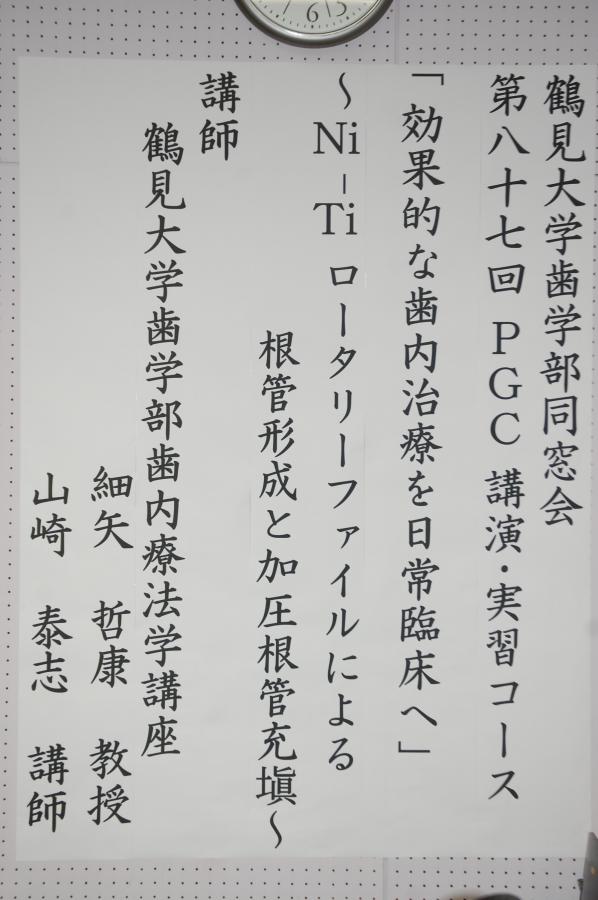 鶴見大学歯学部同窓会
第八十七回 PGC 講演・実習コース
「効果的な歯内治療を日常臨床へ」
～Ni-Ti ロータリーファイルによる
根管形成と加圧根管充塡～
講師
鶴見大学歯学部歯内療法学講座
細矢 哲康 教授
山崎 泰志 講師
6 5